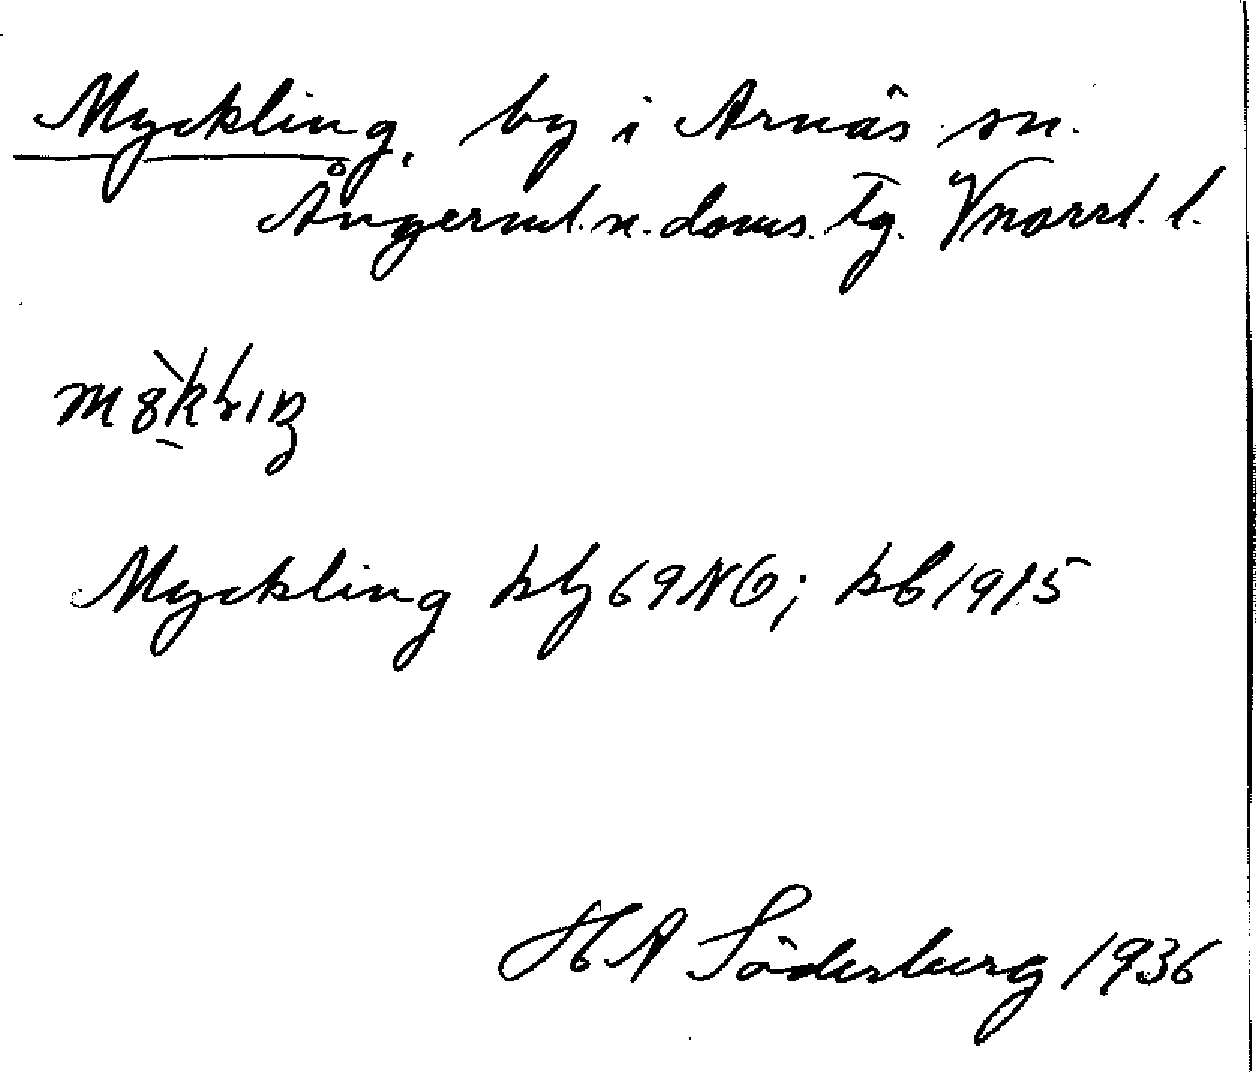 Myckling, by i Arnäs sn.
Ångerml. n. doms. tg. Vnorrl. l.
Myckling kbl 69 NO; kb 1915
H A Söderberg 1936